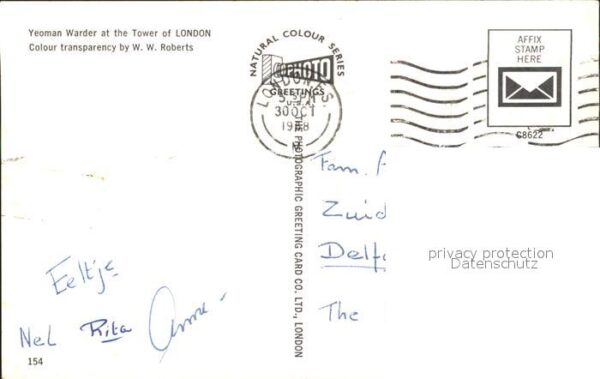 Yeoman Warder at the Tower of LONDON
Colour transparency by W. W. Roberts
NATURAL COLOUR SERIES
PHOTO
GREETINGS
LONDON
30 OCT
THE PHOTOGRAPHIC GREETING CARD CO. LTD., LONDON
AFFIX
STAMP
HERE
C8622
Fam.
Zuid
Delf
The
privacy protection
Datenschutz
Eeltje
Nel Rita Anne
154